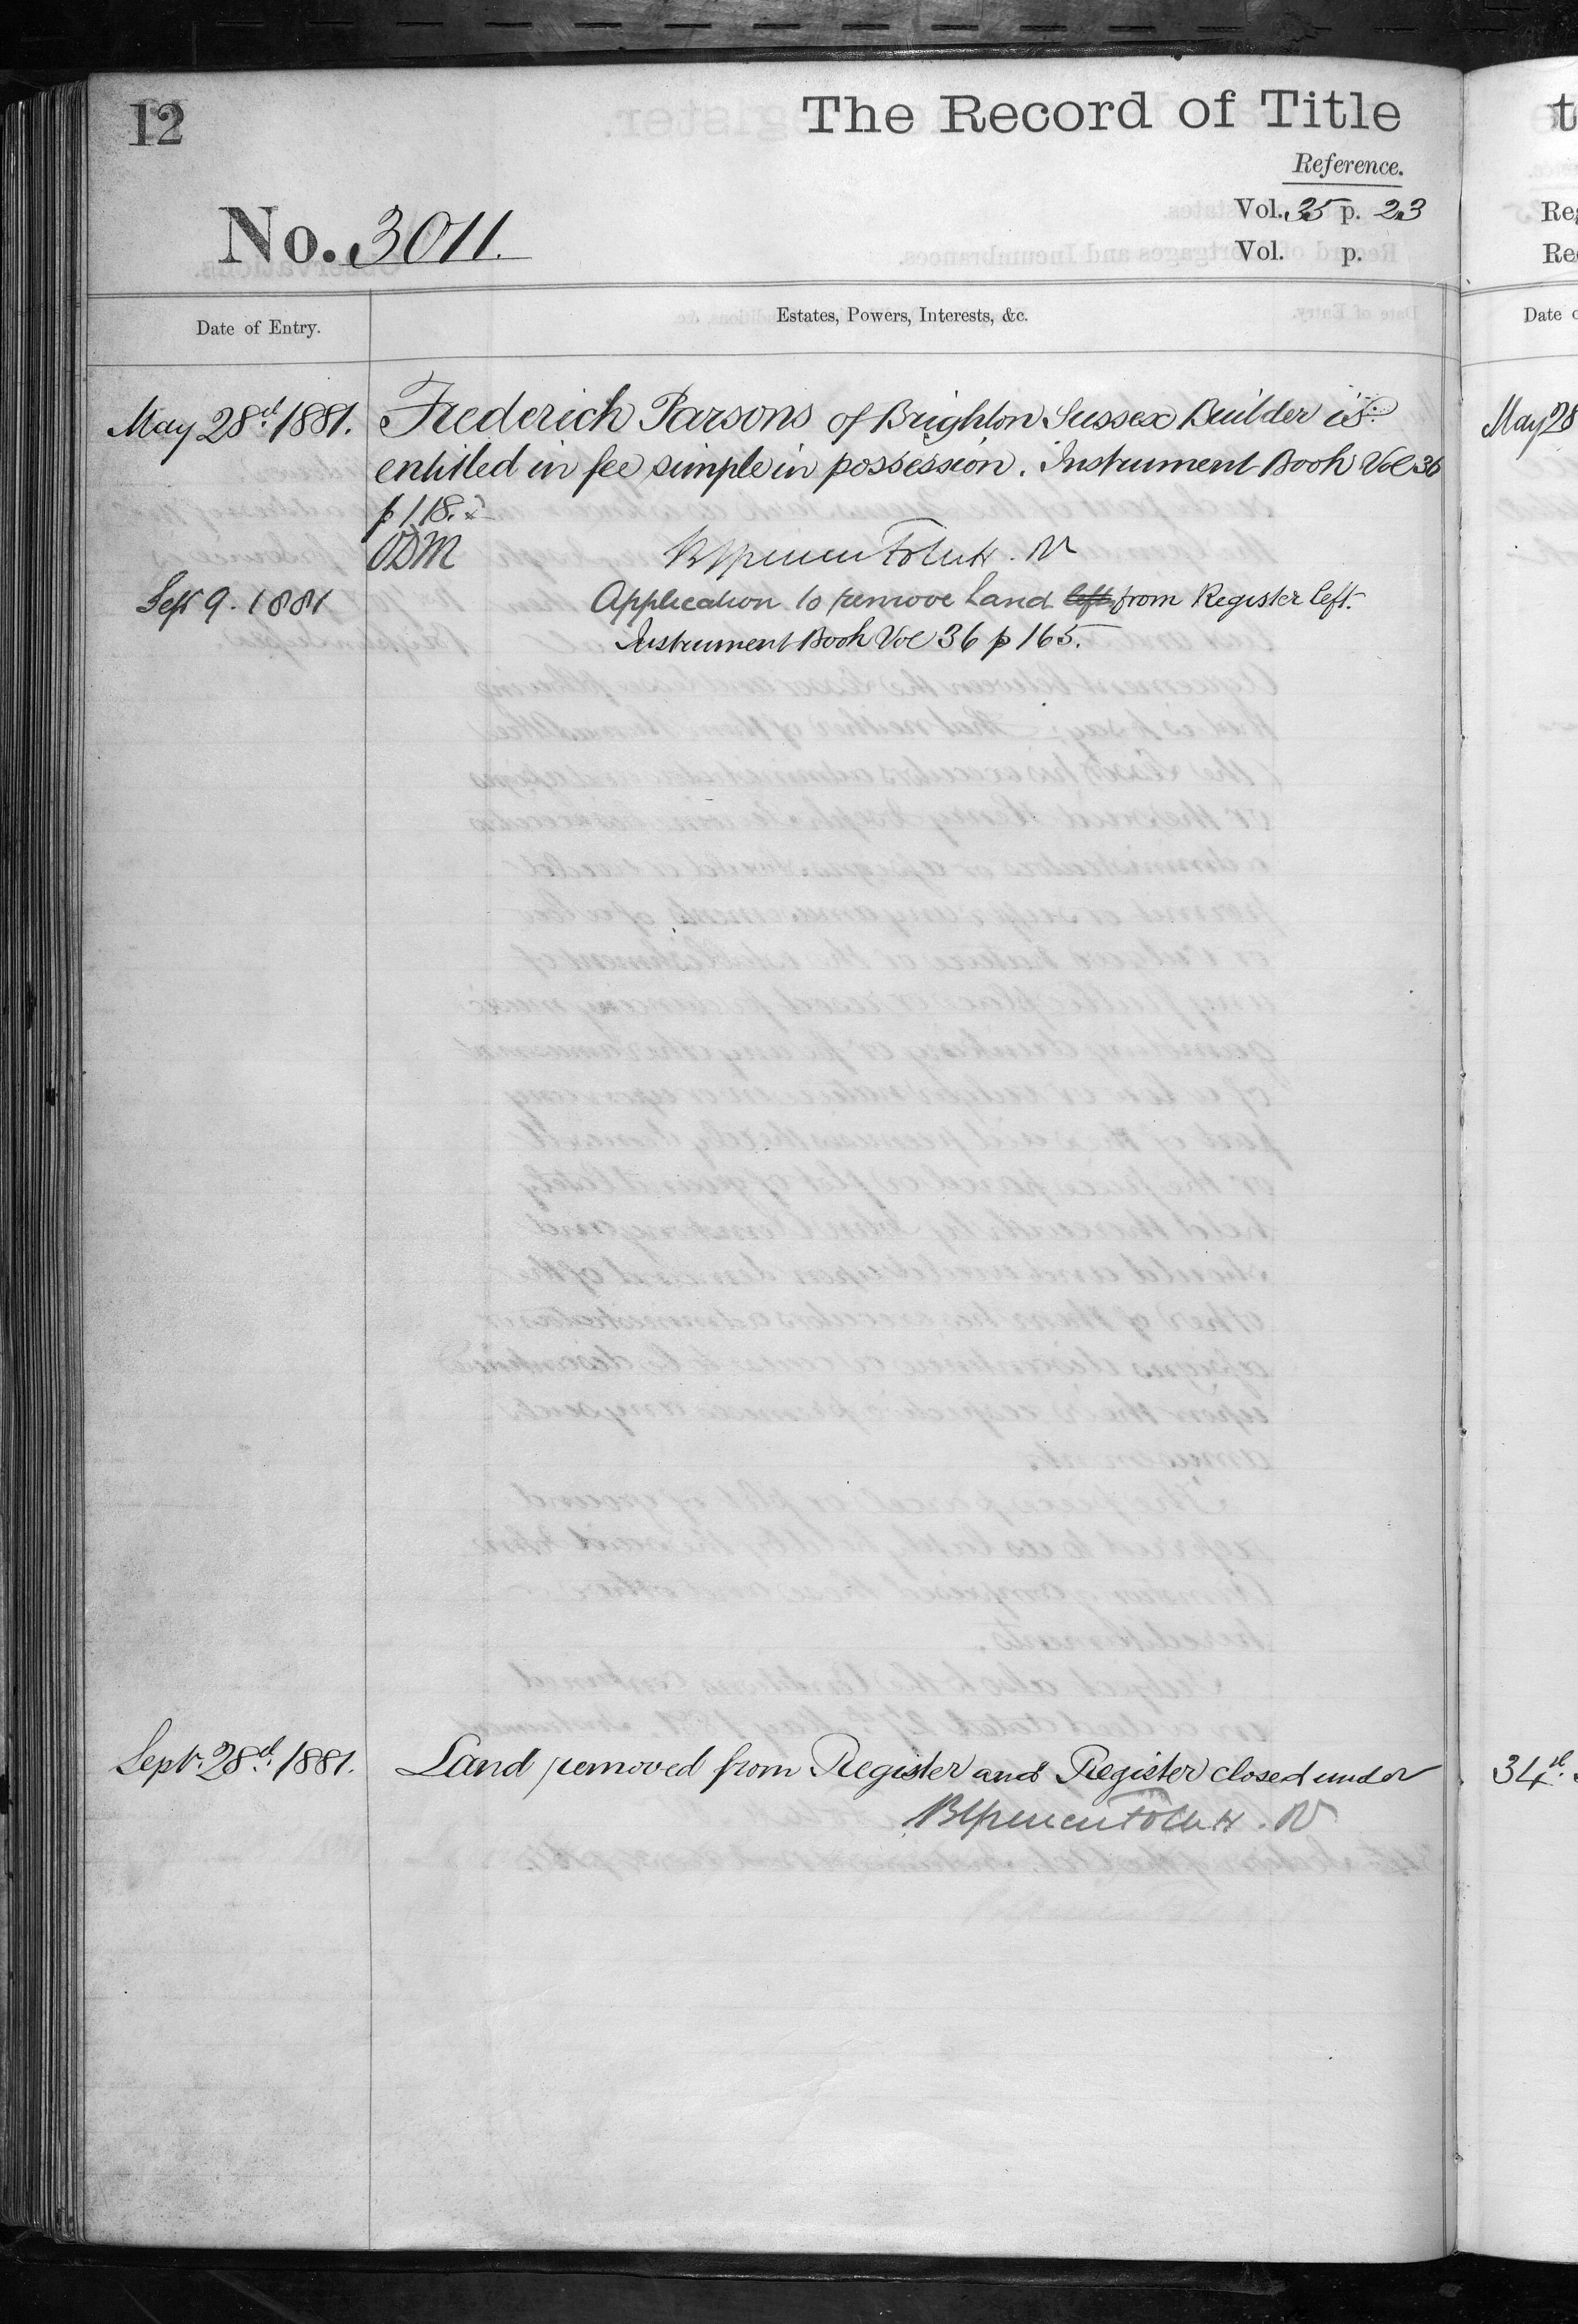 12
The Record of Title
Reference.
No. 3011.
Vol. 35 p. 23
Vol. p.
Date of Entry.
Estates, Powers, Interests, &c.
May 28th 1881.
Frederick Parsons of Brighton Sussex Builder is
entitled in fee simple in possession. Instrument Book Vol 36
p 118.
ODM
Sept 9. 1881
Application to remove Land left from Register left.
Instrument Book Vol 36 p 165.
Sept. 28th 1881.
Land removed from Register and Register closed under
t
Reg
Re
Date o
May 28
34th